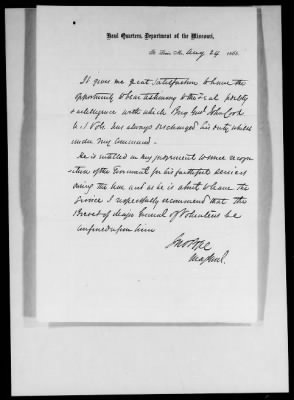 Head Quarters, Department of the Missouri,
St. Louis Mo. Aug 24 1865.
It gives me great satisfaction to have the
opportunity to bear testimony to the zeal fidelity
& intelligence with which Brig Genl John Cook
U.S Vols has always discharged his duty whilst
under my command.
He is entitled in my judgement to some recogn
ition of the Government for his faithful services
during the war and as he is about to leave the
service I respectfully recommend that the
Brevet of Major General of Volunteers be
conferred upon him
Jno Pope
Maj Genl.